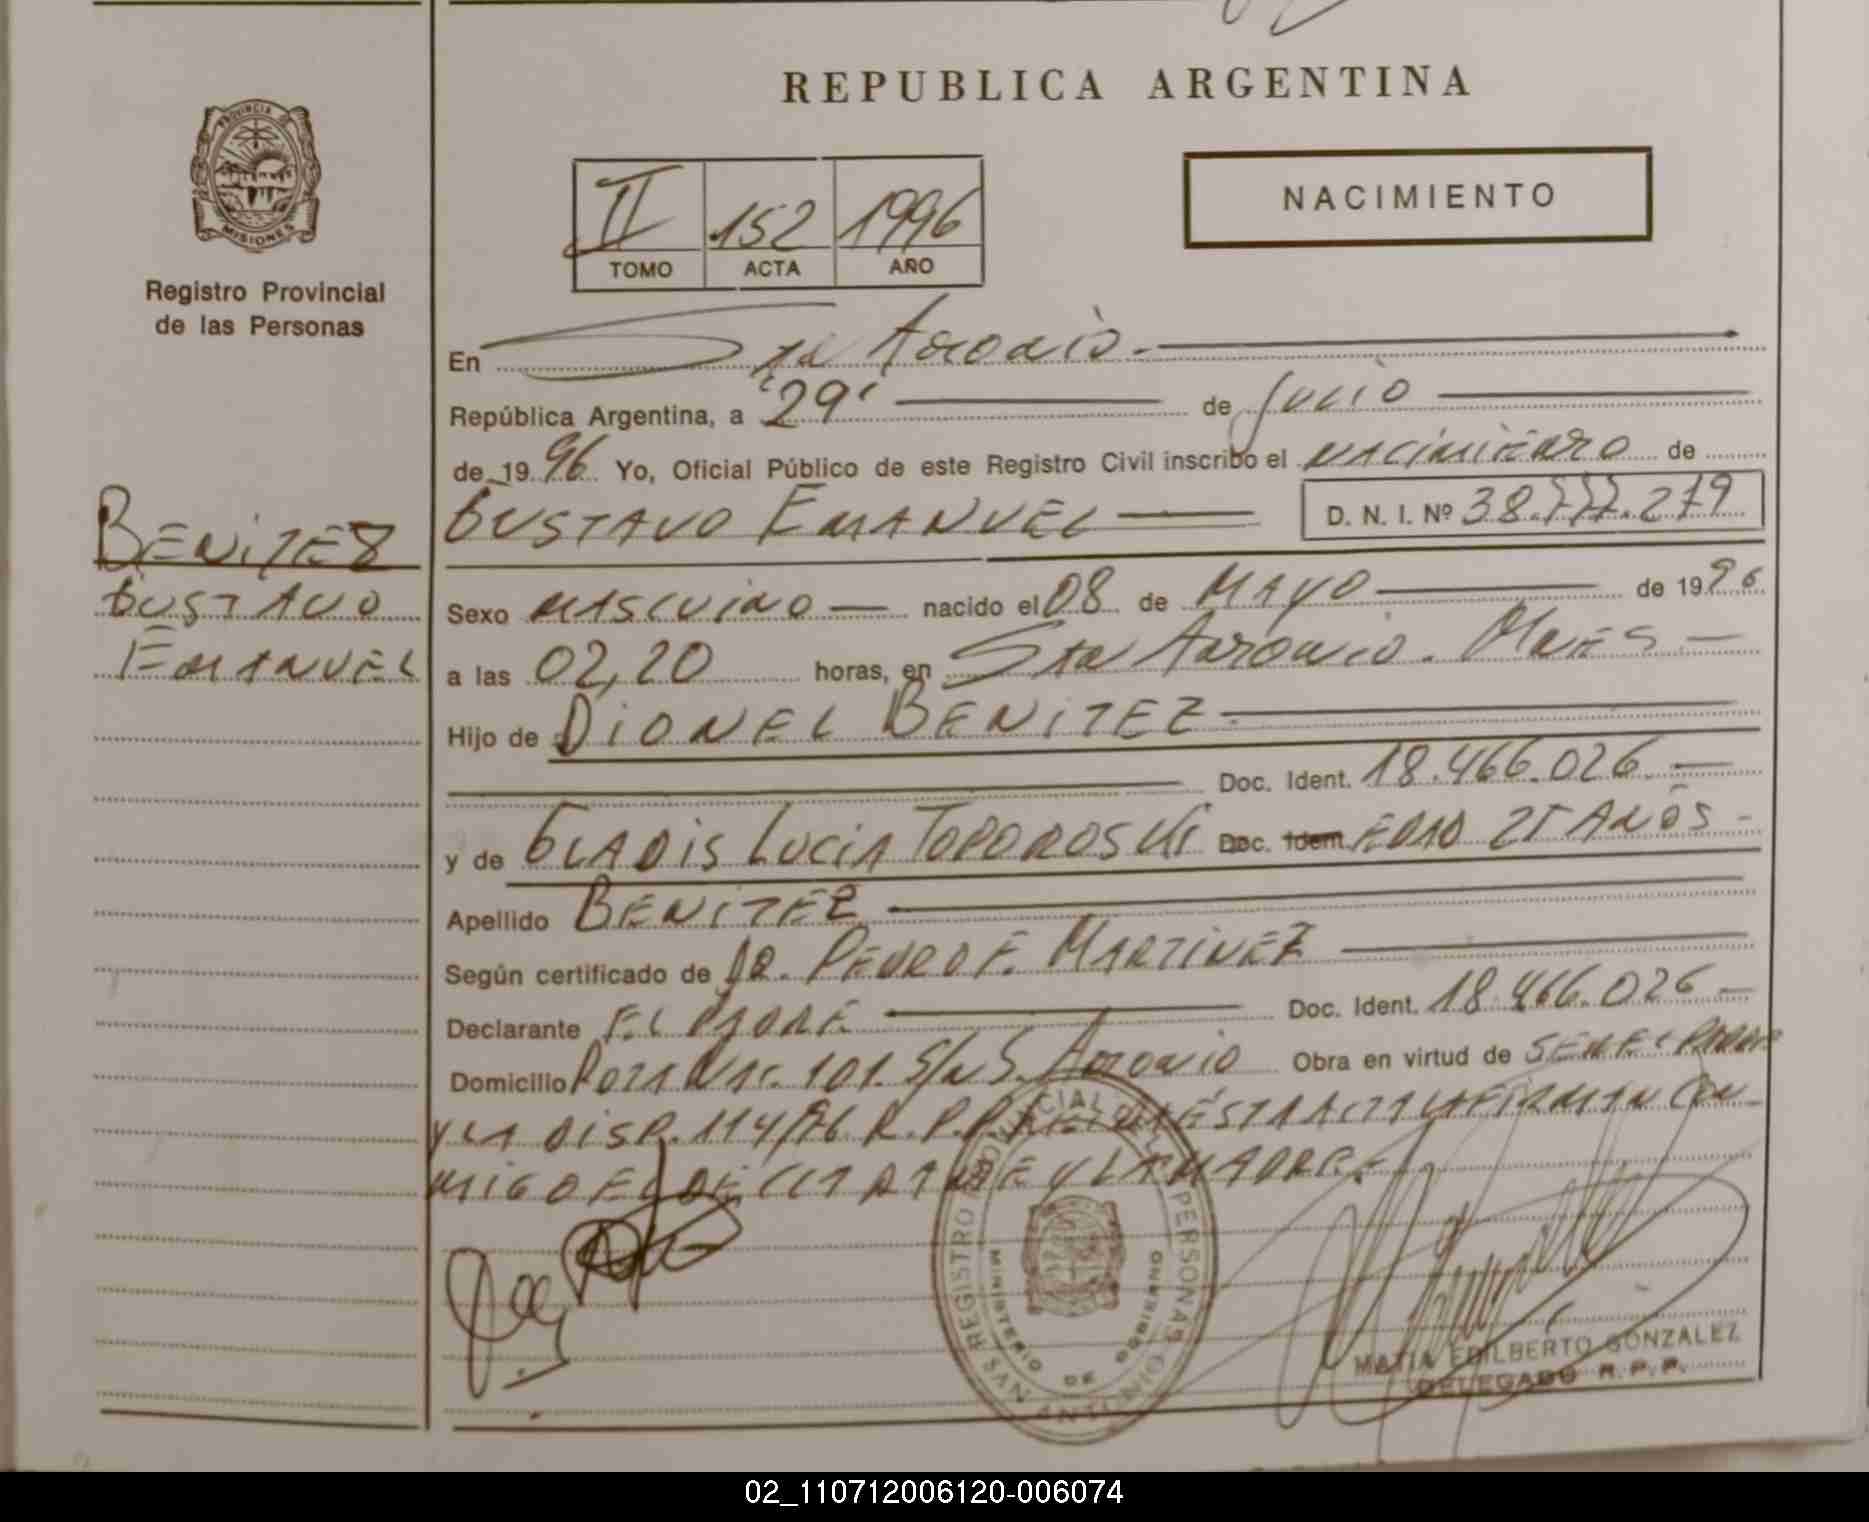 REPUBLICA ARGENTINA
PROVINCIA DE
MISIONES
Registro Provincial
de las Personas
II 152 1996
TOMO ACTA AÑO
NACIMIENTO
En San Antonio
República Argentina, a "29" de Julio
de 1996 Yo, Oficial Público de este Registro Civil inscribo el nacimiento de
GUSTAVO EMANUEL D. N. I. Nº 38.777.279
BENITEZ
GUSTAVO
EMANUEL
Sexo masculino nacido el 08 de MAYO de 1996
a las 02,20 horas, en San Antonio. Mnes
Hijo de DIONEL BENITEZ
Doc. Ident. 18.466.026
y de GLADIS LUCIA TOPOROSKI Doc. Iden. EDAD 25 AÑOS
Apellido BENITEZ
Según certificado de Dr. PEDRO F. MARTINEZ
Declarante EL PADRE Doc. Ident. 18.466.026
Domicilio Ruta Nac. 101. S/N S. Antonio Obra en virtud de SER EL PADRE
Y LA DISP. 114/96 R.P.P. ESTA ACTA LA FIRMAN CON
MIGO EL DECLARANTE Y LA MADRE
REGISTRO PROVINCIAL DE LAS PERSONAS
MINISTERIO DE GOBIERNO
SAN ANTONIO
MATIA EDILBERTO GONZALEZ
DELEGADO R.P.P.
02_110712006120-006074